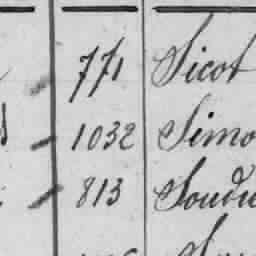 771 Sicot
1032 Simo
813 Soudu